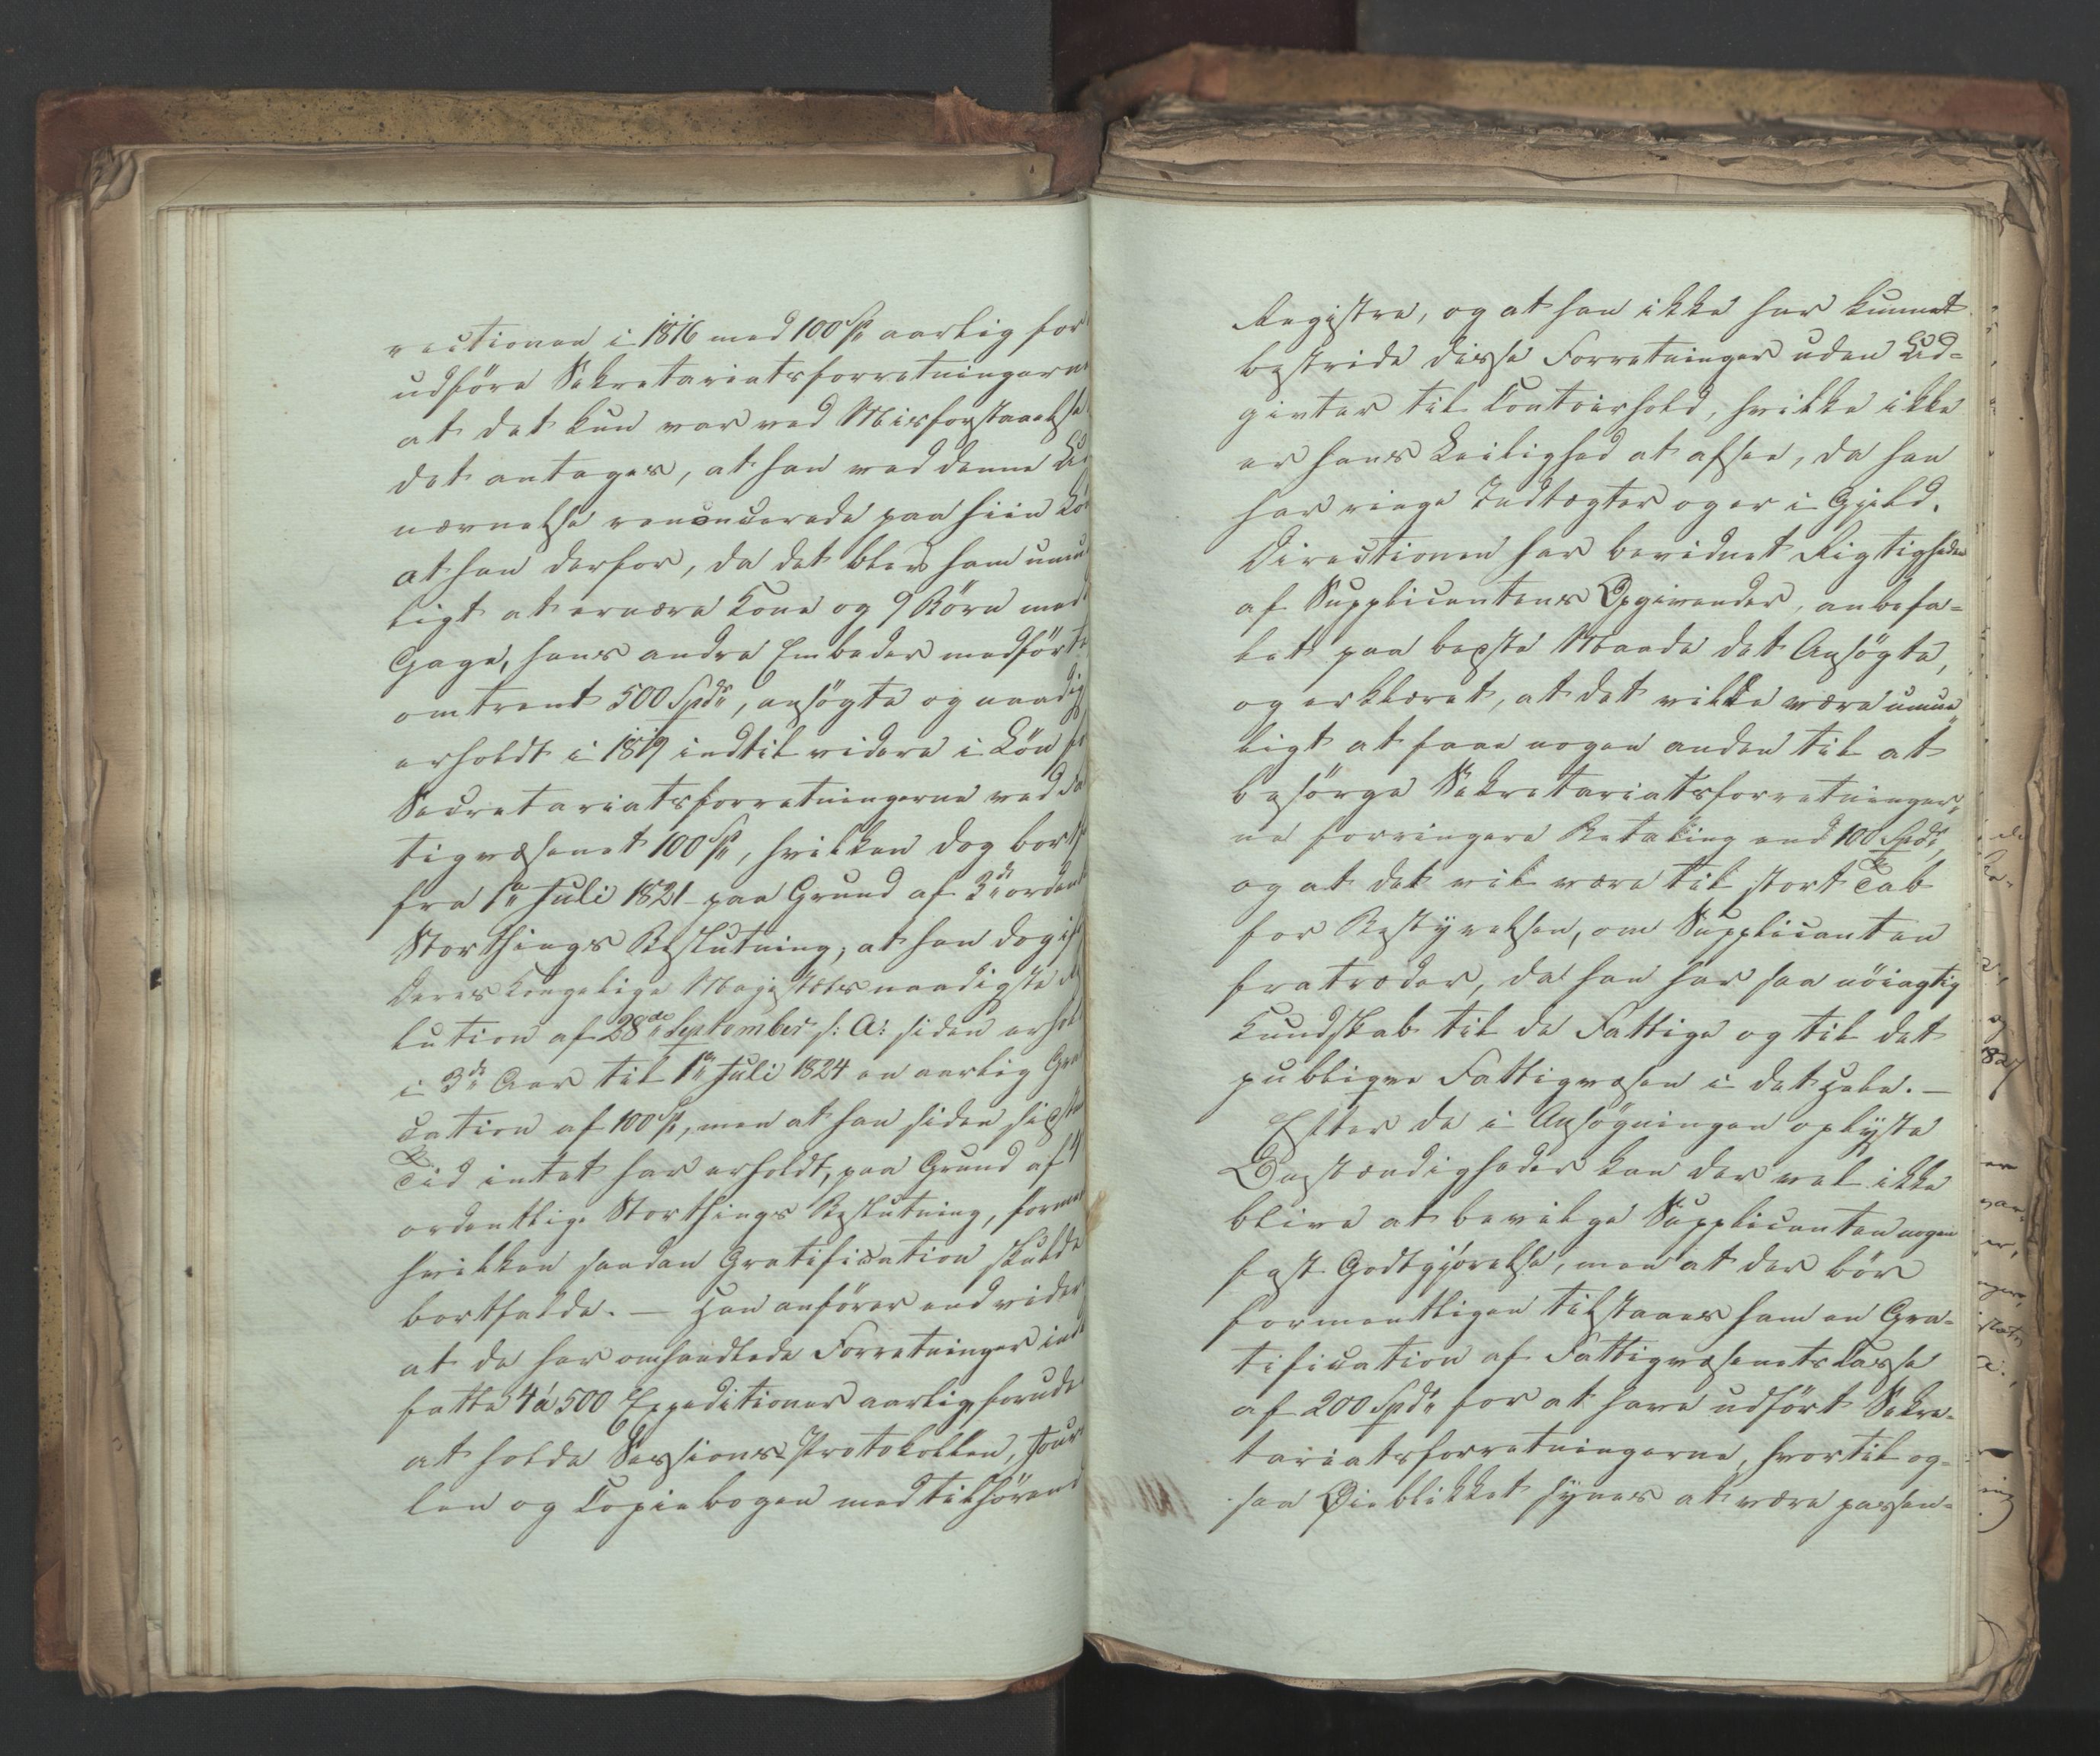 rectionen i 1816 med 100 Sp aarlig for
udföre Sekretariatsforretningerne
at det kun var ved Misforstaaelse
det antages, at han ved denne Ud
nævnelse renoncerede paa hiin Lö
at han derfor, da det blev ham umu
ligt at ernære Kone og 9 Börn med
Gage, hans andre Embeder medförte
omtrent 500 Spdr, ansögte og naadig
erholdt i 1819 indtil videre i Lön fo
Secretariatsforretningerne ved Fat
tigvæsenet 100 Sp, hvilken dog bortf
fra 1te Juli 1821 paa Grund af 3de ordent
Storthings Beslutning, at han dog if
Deres Kongelige Majestæts naadigste Re
lution af 28de September s: A: siden erhol
i 3de Aar til 1te Juli 1824 en aarlig Gra
cation af 100 Sp, men at han siden sidst
Tid intet har erholdt, paa Grund af 4
ordentlige Storthings Beslutning, forme
hvilken saadan Gratification skulde
bortfalde. — Han anförer endvidere
at de her omhandlede Forretninger ind
fatte 4 á 500 Expeditioner aarlig, forude
at holde Sessions-Protokollen, Jour
len og Copiebogen med tilhörend
Registre, og at han ikke har kunnet
bestride disse Forretninger uden Ud-
givter til Contoirhold, hvilke ikke
er hans Leilighed at afsee, da han
har ringe Indtægter og er i Gjeld.
Directionen har bevidnet Rigtigheden
af Supplicantens Opgivender, anbefa-
let paa bedste Maade det Ansögte,
og erklæret, at det vilde være umue
ligt at faae nogen anden til at
besörge Sekretariatsforretninger-
ne for ringere Betaling end 100 Spdr,
og at det vil være til stort Tab
for Bestyrelsen, om Supplicanten
fratræder, da han har saa nöiagtig
Kundskab til de Fattige og til det
publiqve Fattigvæsen i det Hele. —
Efter de i Ansögningen oplyste
Omstændigheder kan der vel ikke
blive at bevilge Supplicanten nogen
fast Godtgjörelse, men at der bör
formentligen tilstaaes ham en Gra-
tification af Fattigvæsenets Casse
af 200 Spdr for at have udfört Sekre-
tariatsforretningerne, hvortil og-
saa Öieblikket synes at være passen-